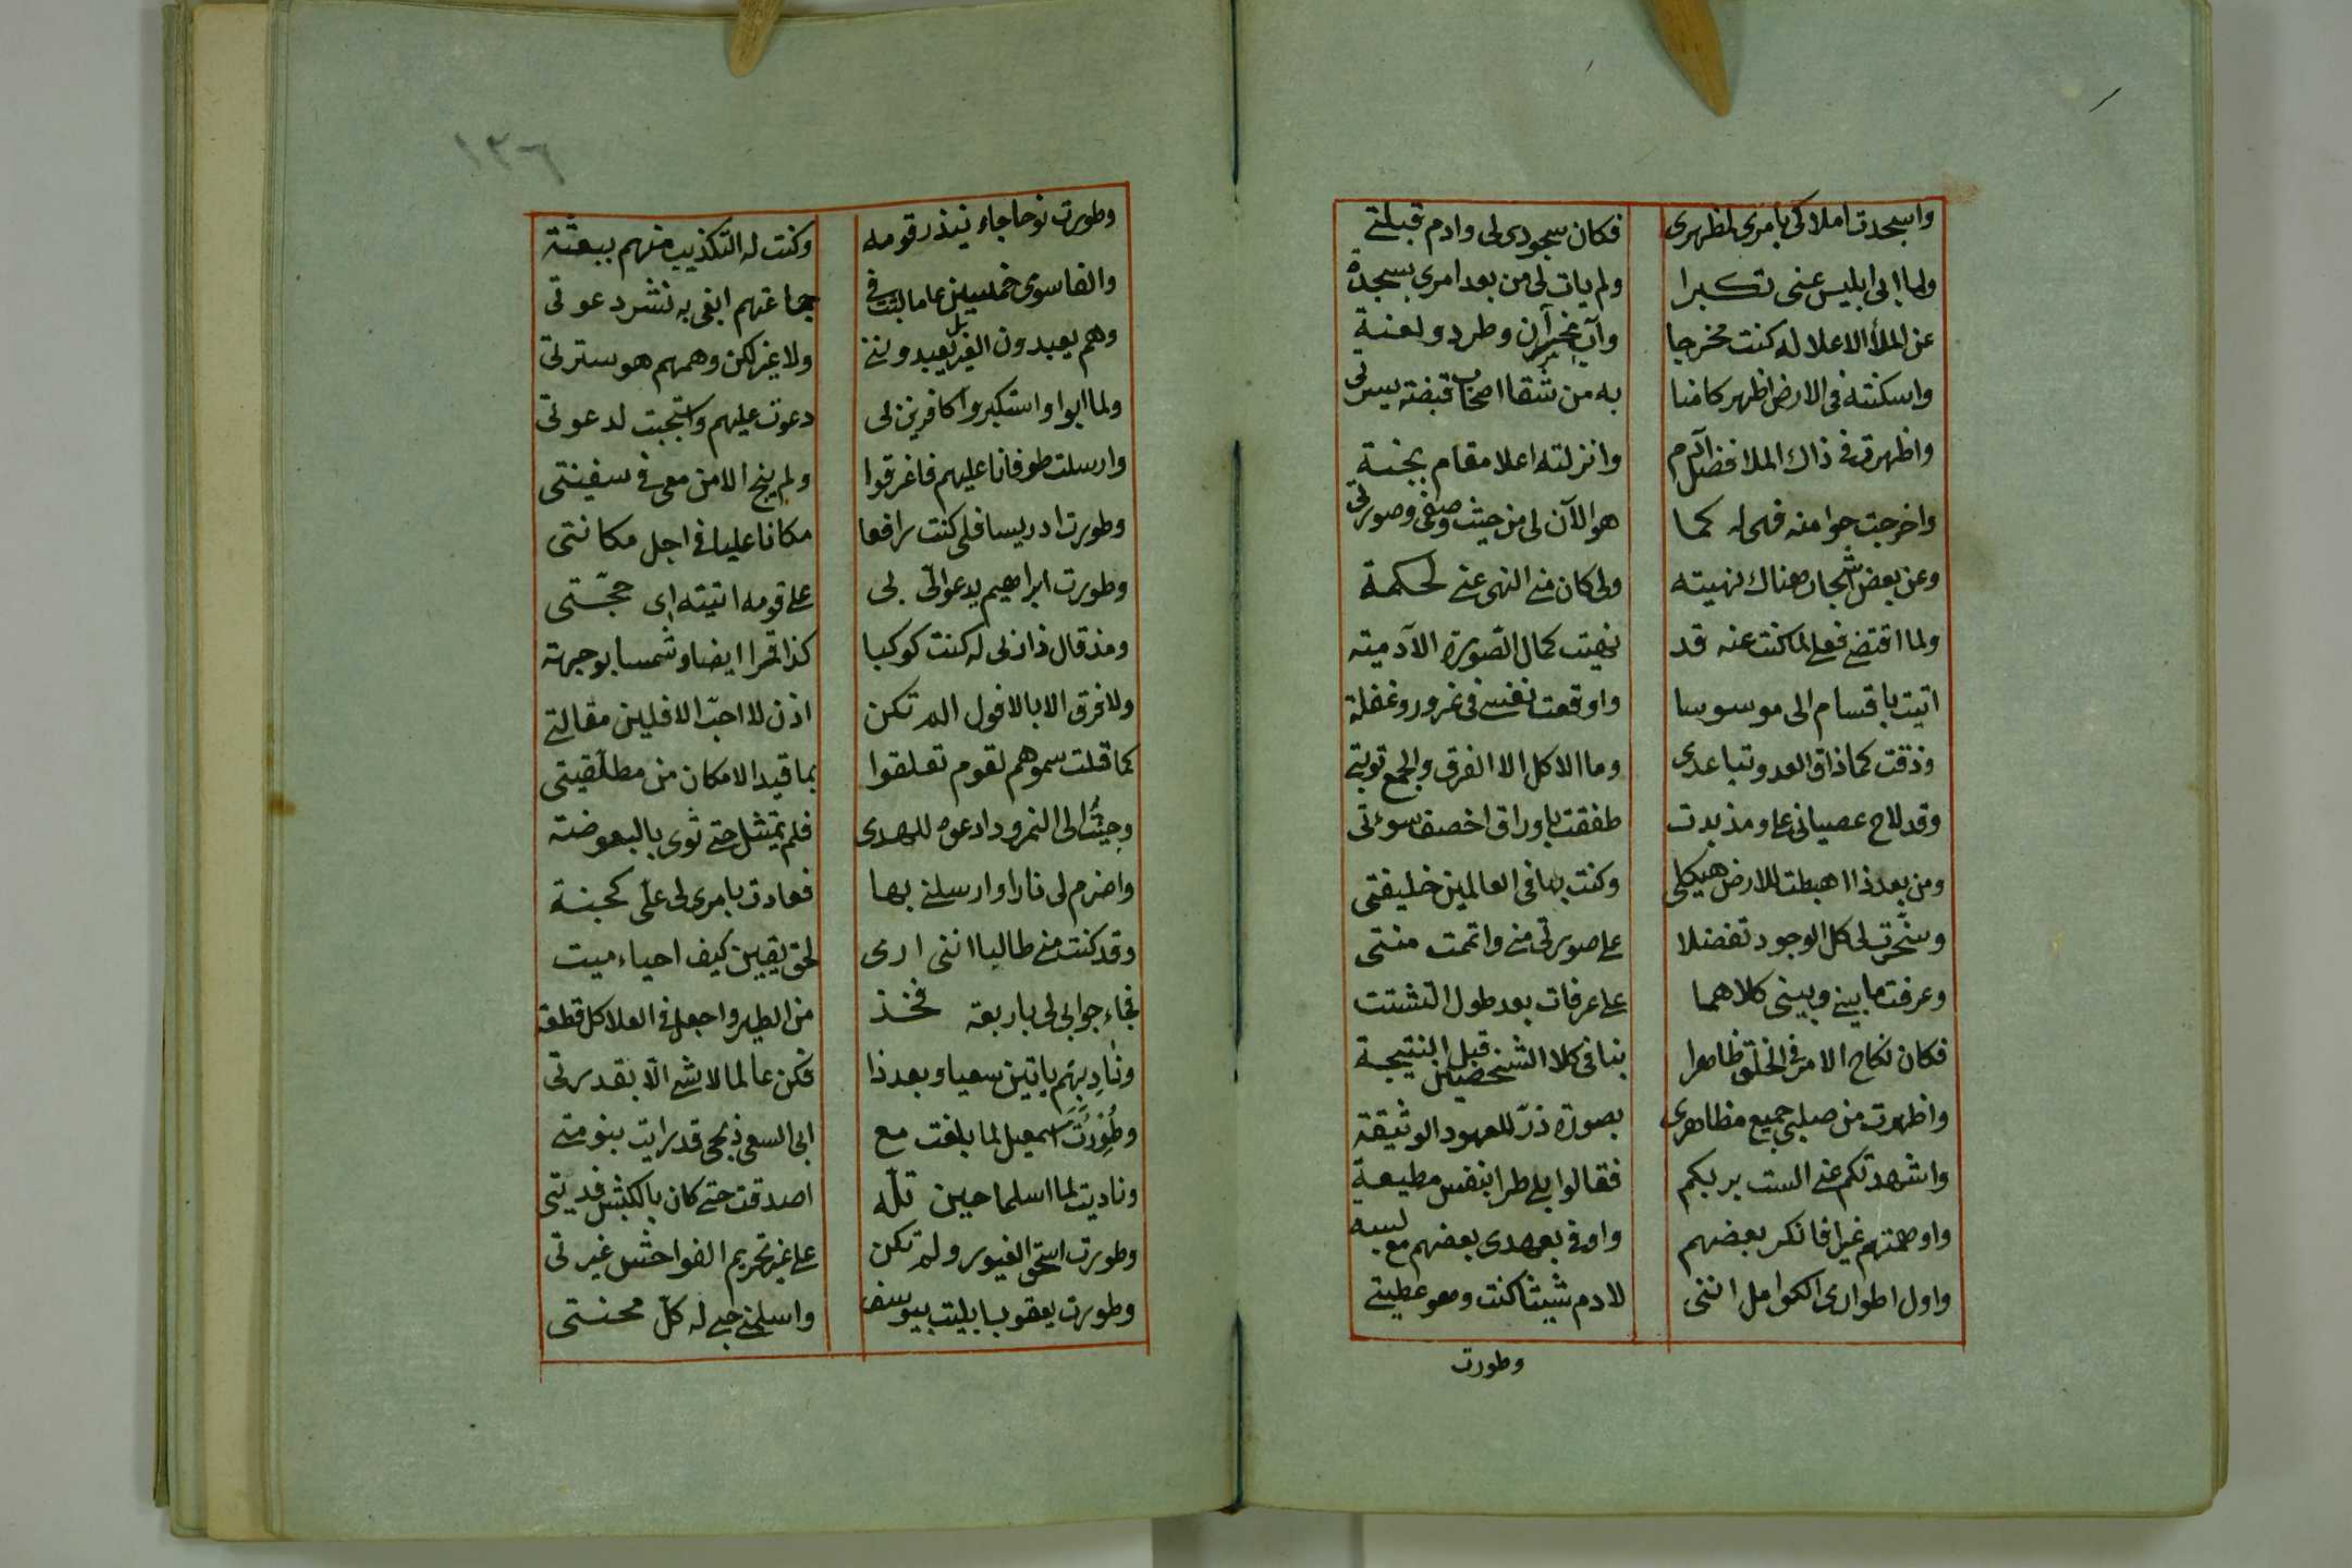 واسجدت املاكى بامرى لمظهرى فكان سجودى لى وادم قبلتى
ولما ابى ابليس عنى تكبرا ولم يات لى من بعد امرى بسجدة
عن الملأ الاعلا له كنت مخرجا وطرد ولعنة
واسكنته فى الارض اظهر كامنا به من شقا اصحاب قبضة يسرتى
واظهرت فى ذاك الملا فضل آدم وانزلته اعلا مقام بجنة
واخرجت حوا منه فهى له كما هو الآن لى من حيث وصفى وصورتى
وعن بعض اشجار هناك نهيته ولى كان منى النهى عنى لحكمة
ولما اقتضى فعلى لما كنت عنه قد نهيت كمال الصورة الآدمية
اتيت باقسام الى موسوسا واوقعت نفسى فى غرور وغفلة
وذقت كما ذاق العدو تباعدى وما الاكل الا الفرق والجمع توبتى
وقد لاح عصيانى على ومذ بدت طفقت باوراق اخصف سوءتى
ومن بعد ذا اهبطت للارض هيكلى وكنت بها فى العالمين خليفتى
وسخّرت لى كل الوجود تفضلا على صورتى منى واتممت منتى
وعرفت ما بينى وبينى كلاهما على عرفات بعد طول التشتت
فكان نكاح الامر فى الخلق ظاهرا بنا فى كلا الشخصين قبل النتيجة
واظهرت من صلبى جميع مظاهرى بصورة ذرّ للعهود الوثيقة
واشهدتكم عنى الست بربكم فقالوا بلى طرا بنفس مطيعة
واوهمتهم غيرا فانكر بعضهم واوفى بعهدى بعضهم مع لبسه
واول اطوارى الكوامل اننى لادم شيثا كنت وهو عطيتى
وطورت
١٣٦
وطورت نوحا جاء ينذر قومه وكنت له التكذيب منهم ببعثة
والفا سوى خمسين عاما لبثت فى جماعتهم ابغى به نشر دعوتى
وهم يعبدون الغير بل يعبدوننى ولا غير لكن وهمهم هو سترتى
ولما ابوا واستكبروا كافرين لى دعوت عليهم واستجبت لدعوتى
وارسلت طوفانا عليهم فاغرقوا ولم ينج الا من معى فى سفينتى
وطورت ادريسا فلى كنت رافعا مكانا عليا فى اجل مكانتى
وطورت ابراهيم يدعو الىّ بى على قومه اتيته اى حجّتى
ومذ قال ذا ربى له كنت كوكبا كذا قمرا ايضا وشمسا بوجهة
ولا فرق الا بالافول الم تكن اذن لا احبّ الافلين مقالتى
كما قلت سموهم لقوم تعلقوا بما قيد الامكان من مطلقيتى
وجئتُ الى النمرود ادعوه للهدى فلم يمتثل حتى ثوى بالبعوضة
واضرم لى نارا وارسلنى بها فعادت بامرى لى علىّ كجنة
وقد كنت منى طالبا اننى ارى لحق يقين كيف احياء ميت
فجاء جوابى لى باربعة فخذ من الطير واجعل فى العلا كل قطعة
ونادِ بهم ياتين سعيا وبعد ذا فكن عالما لا شى الّا بقدرتى
وطُوِّرتُ اسمعيل لما بلغت مع ابى السعى ذبحى قد رايت بنومتى
وناديت لما اسلما حين تلّه اصدقت حتى كان بالكبش فديتى
وطورت اسحق الغيور ولم تكن على غير تحريم الفواحش غيرتى
وطورت يعقوبا بليت بيوسف واسلمنى حبى له كلّ محنتى